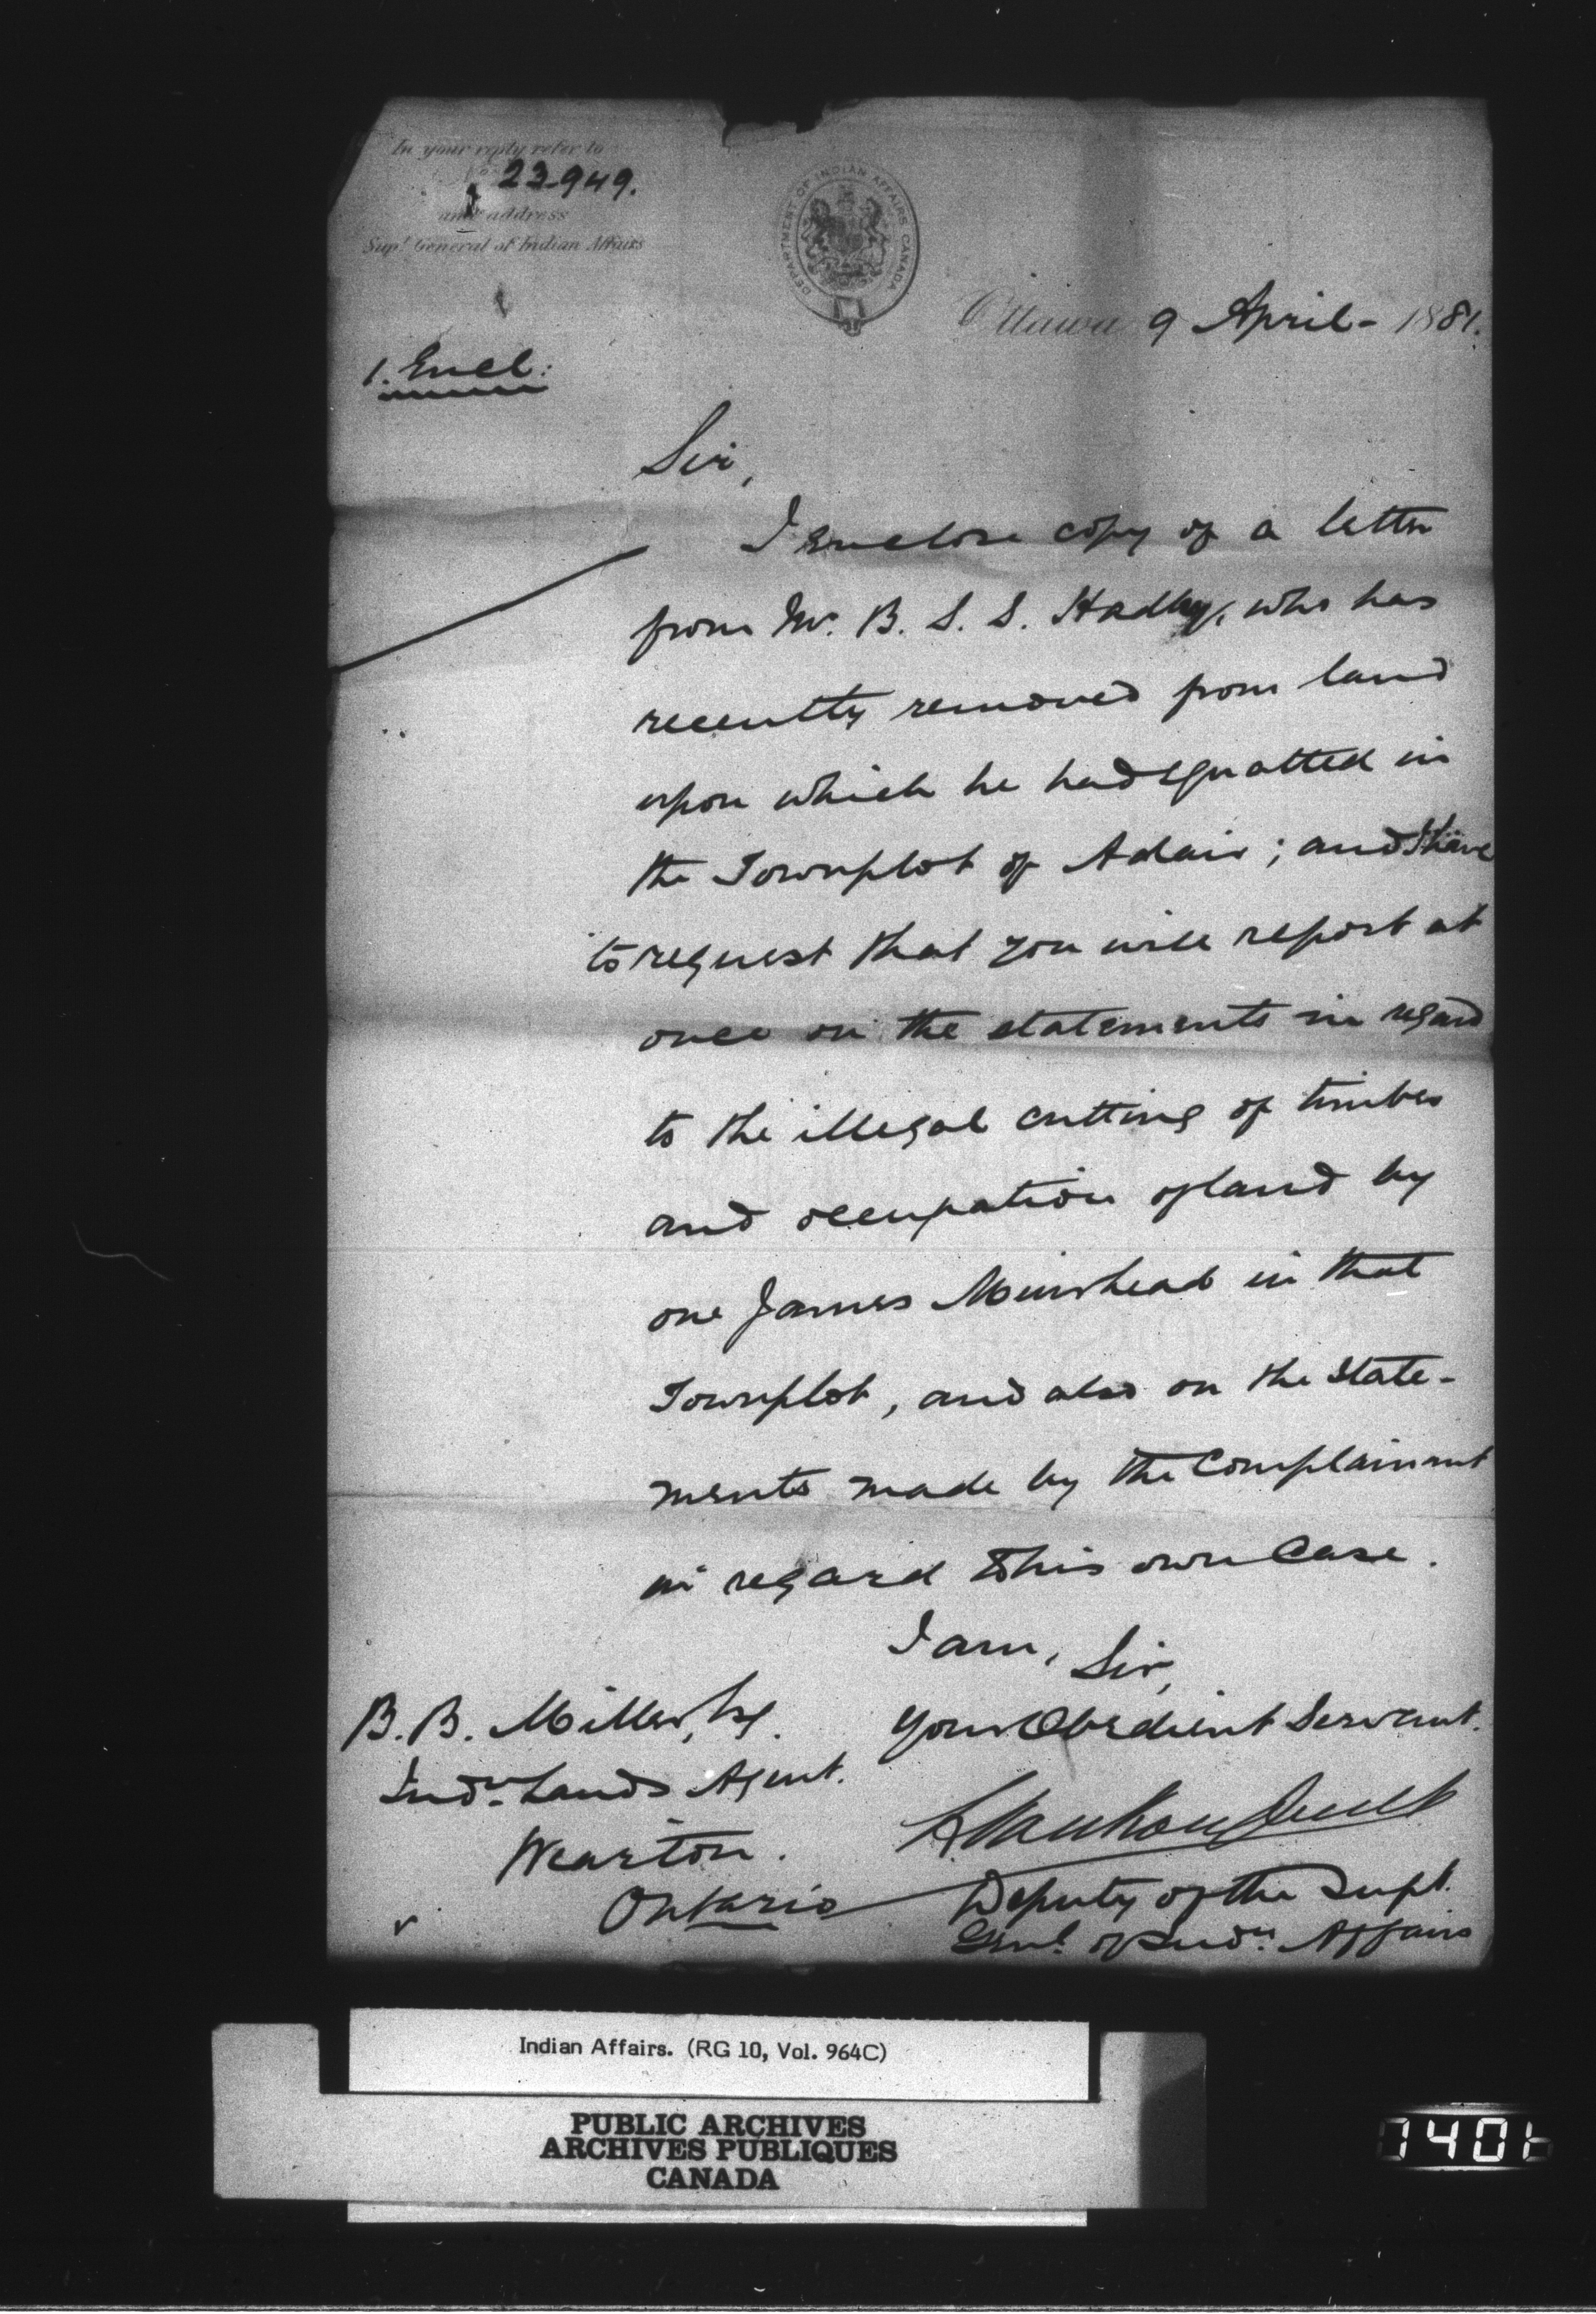 In your reply refer to
No. 23.949.
and address
Supt. General of Indian Affairs
DEPARTMENT OF INDIAN AFFAIRS CANADA
Ottawa 9 April - 1881.
1. Encl:
Sir,
I enclose copy of a letter
from Mr. B. S. S. Hadley, who has
recently removed from land
upon which he had squatted in
the Townplot of Adair; and I have
to request that you will report at
once on the statements in regard
to the illegal cutting of timber
and occupation of land by
one James Muirhead in that
Townplot, and also on the state-
ments made by the Complainant
in regard to his own Case.
I am, Sir,
Your Obedient Servant.
B. B. Miller, Esq.
Indn. Lands Agent.
Wearton.
Ontario
L VanKoughnet
Deputy of the Supt.
Genl. of Indn. Affairs
Indian Affairs. (RG 10, Vol. 964C)
PUBLIC ARCHIVES
ARCHIVES PUBLIQUES
CANADA